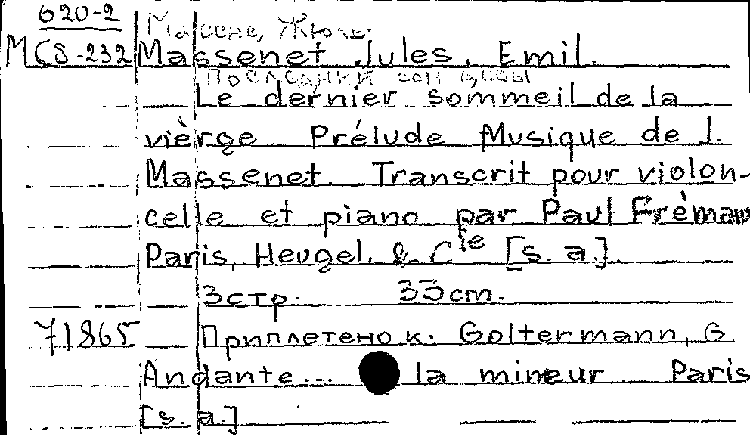 620-2
Массне, Жюль.
MCS-232 Massenet Jules. Emil.
Последний сон
Le dernier sommeil de la
vièrge Prélude Musique de J.
Massenet Transcrit pour violon-
celle et piano par Paul Frèmaux
Paris, Heugel & Cie [s. a.].
3 стр. 33 cm.
71865 Приплетено к: Goltermann, G
Andante... la mineur Paris
[s. a.]